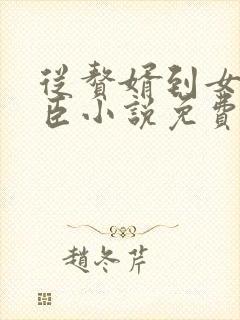 從贅婿到女
臣小說免費
趙冬芹